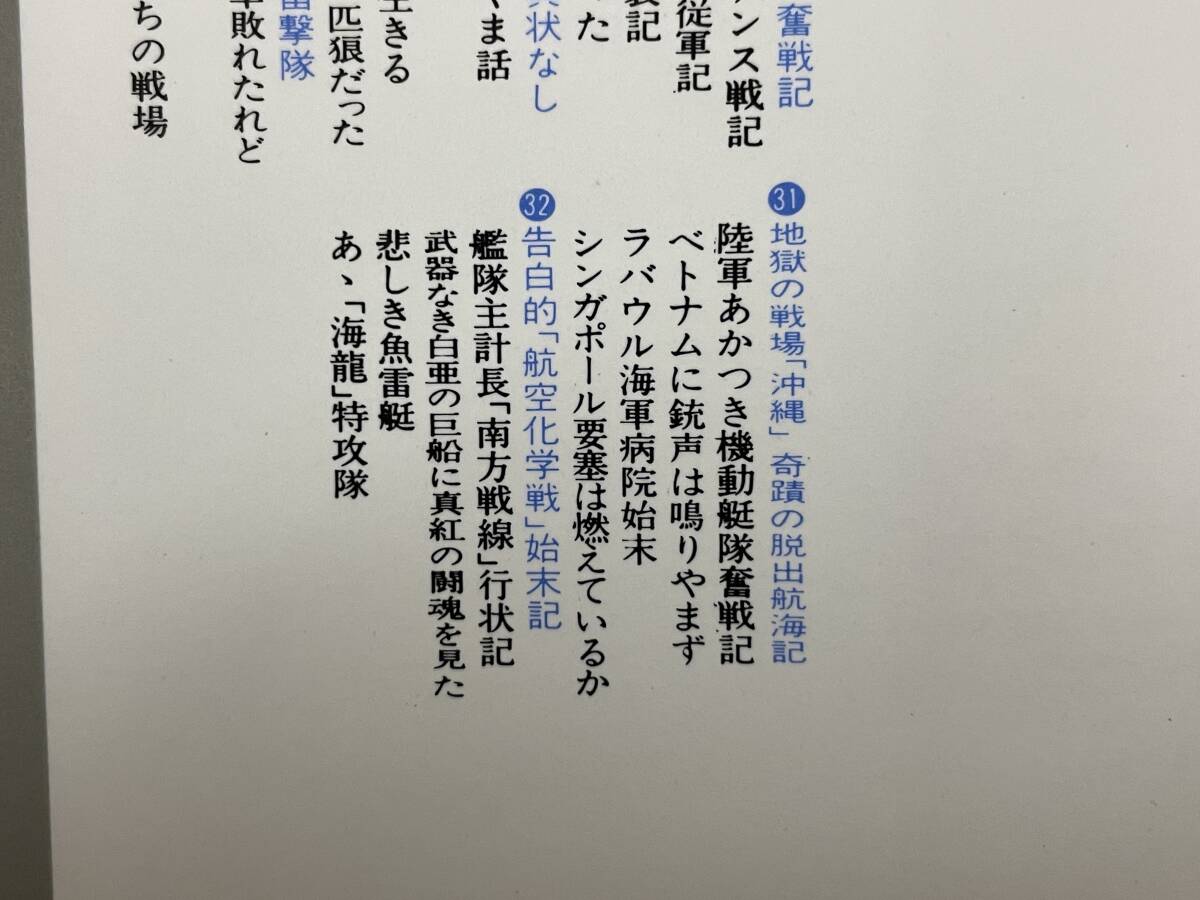 奮戦記
ンス戦記
従軍記
記
た
状なし
ま話
きる
匹狼だった
雷撃隊
敗れたれど
ちの戦場
31 地獄の戦場「沖縄」奇蹟の脱出航海記
陸軍あかつき機動艇隊奮戦記
ベトナムに銃声は鳴りやまず
ラバウル海軍病院始末
シンガポール要塞は燃えているか
32 告白的「航空化学戦」始末記
艦隊主計長「南方戦線」行状記
武器なき白亜の巨船に真紅の闘魂を見た
悲しき魚雷艇
あゝ「海龍」特攻隊